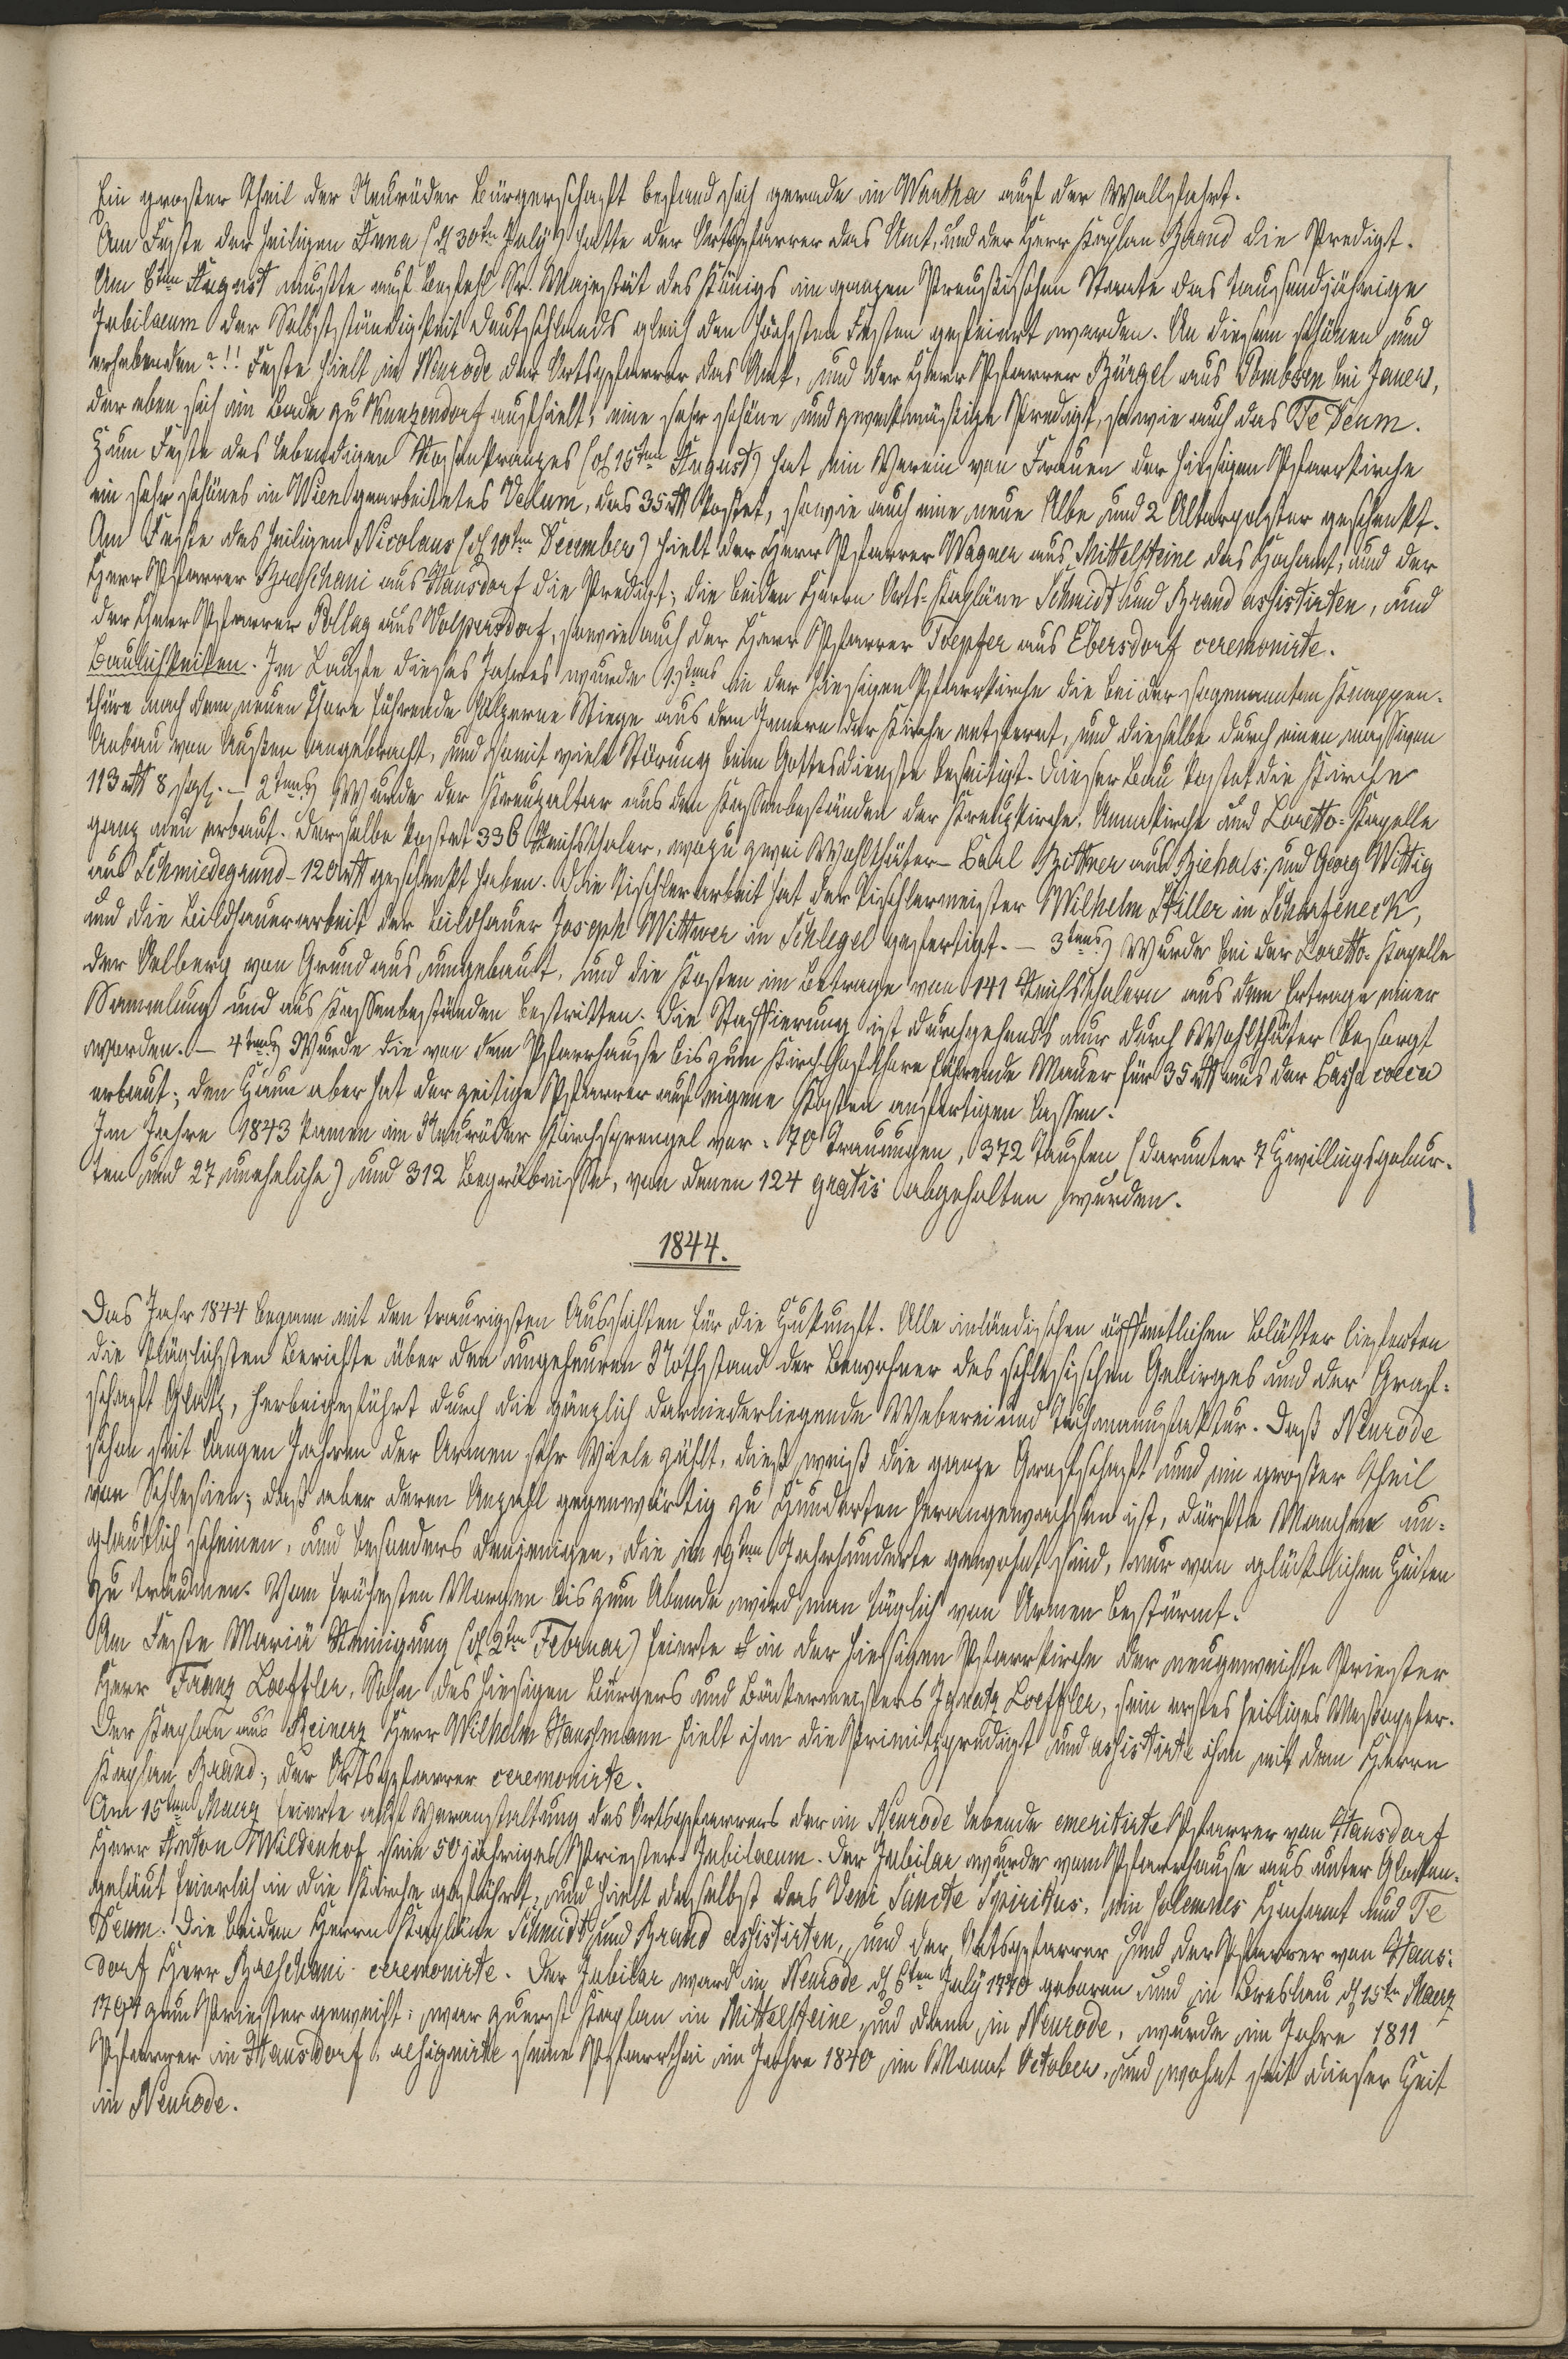 Ein grosser Theil der Neuröder Bürgerschaft befand sich gerade in Wartha auf der Wallfahrt.
Am Feste der heiligen Anna (d 30ten July) hatte der Ortspfarrer das Amt, und der Herr Kaplan Brand die Predigt.
Am 6ten August mußte auf Befehl Sr. Majestät des Königs im ganzen Preußischen Staate das tausendjährige
Jubilaeum der Selbstständigkeit Deutschlands gleich den höchsten Festen gefeiert werden. An diesem schönen und
erhebenden?!! Feste hielt in Neurode der Ortspfarrer das Amt, und der Herr Pfarrer Bürgel aus Pombsen bei Jauer,
der eben sich im Bade zu Kunzendorf aufhielt, eine sehr schöne und zweckmäßige Predigt, sowie auch das Te Deum.
Zum Feste des lebendigen Rosenkranzes (d 15ten August) hat ein Verein von Frauen der hiesigen Pfarrkirche
ein sehr schönes in Wien gearbeitetes Velum, das 35 rtl kostet, sowie auch eine neue Albe und 2 Altarpolster geschenkt.
Am Feste des heiligen Nicolaus (d 10ten December) hielt der Herr Pfarrer Wagner aus Mittelsteine das Hochamt, und der
Herr Pfarrer Breschani aus Hausdorf die Predigt; die beiden Herrn Orts-Kapläne Schmidt und Brand assistirten, und
der Herr Pfarrer Pollag aus Volpersdorf, sowie auch der Herr Pfarrer Toepfer aus Ebersdorf ceremonirte.
Baulichkeiten. Im Laufe dieses Jahres wurde 1stens in der hiesigen Pfarrkirche die bei der sogenannten Knappen-
thüre nach dem neuen Chore führende hölzerne Stiege aus dem Innern der Kirche entfernt, und dieselbe durch einen massiven
Anbau von Außen angebracht, und somit viele Störung beim Gottesdienste beseitigt. Dieser Bau kostet die Kirche
113 rtl 8 sgl. - 2tens) Wurde der Kreuzaltar aus den Kassenbeständen der Kreuzkirche, Annakirche und Loretto-Kapelle
ganz neu erbaut. Derselbe kostet 336 Reichsthaler, wozu zwei Wohlthäter - Carl Bittner aus Biehals, und Georg Wittig
aus Schmiedegrund - 120 rtl geschenkt haben. Die Tischlerarbeit hat der Tischlermeister Wilhelm Stiller in Scharfeneck,
und die Bildhauerarbeit der Bildhauer Joseph Wittwer in Schlegel gefertigt. - 3tens) Wurde bei der Loretto-Kapelle
der Oelberg von Grund aus umgebaut, und die Kosten im Betrage von 141 Reichsthalern aus dem Ertrage einer
Sammlung und aus Kassenbeständen bestritten. Die Staffierung ist durchgehends nur durch Wohlthäter besorgt
worden. - 4tens) Wurde die von dem Pfarrhause bis zum Kirchhofthore führende Mauer für 35 rtl aus der Cassa eccl
erbaut; den Zaun aber hat der zeitige Pfarrer auf eigene Kosten anfertigen lassen.
Im Jahre 1843 kamen im Neuröder Kirchsprengel vor: 70 Trauungen, 372 Taufen (darunter 7 Zwillingsgebur-
ten und 27 uneheliche) und 312 Begräbnisse, von denen 124 gratis abgehalten wurden.
1844.
Das Jahr 1844 begann mit den traurigsten Aussichten für die Zukunft. Alle inländischen öffentlichen Blätter lieferten
die kläglichsten Berichte über den ungeheuren Nothstand der Bewohner des schlesischen Gebirges und der Graf-
schaft Glatz, herbeigeführt durch die gänzlich darniederliegende Weberei und Tuchmanufaktur. Daß Neurode
schon seit langen Jahren der Armen sehr Viele zählt, dieß weiß die ganze Grafschaft und ein großer Theil
von Schlesien; daß aber deren Anzahl gegenwärtig zu Hunderten herangewachsen ist, dürfte Manchem un-
glaublich scheinen, und besonders denjenigen, die im 19ten Jahrhunderte gewohnt sind, nur von glücklichen Zeiten
zu träumen. Vom frühesten Morgen bis zum Abende wird man täglich von Armen bestürmt.
Am Feste Mariä Reinigung (d 2ten Februar) feierte in der hiesigen Pfarrkirche der neugeweihte Priester
Herr Franz Loeffler, Sohn des hiesigen Bürgers und Bäckermeisters Ignatz Loeffler, sein erstes heiliges Meßopfer.
Der Kaplan aus Reinerz Herr Wilhelm Hauschmann hielt ihm die Primitzpredigt und assistirte ihm mit dem Herrn
Kaplan Brand; der Ortspfarrer ceremonirte.
Am 15ten Maerz feierte auf Veranstaltung des Ortspfarrers der in Neurode lebende emeritirte Pfarrer von Hausdorf
Herr Anton Wildenhof sein 50 jähriges Priester-Jubilaeum. Der Jubilar wurde vom Pfarrhause aus unter Glocken-
geläut feierlich in die Kirche geführt, und hielt daselbst das Veni Sancte Spiritus, ein solemnes Hochamt und Te
Deum. Die beiden Herrn Kapläne Schmidt und Brand assistirten, und der Ortspfarrer und der Pfarrer von Haus-
dorf Herr Breschani ceremonirte. Der Jubilar ward in Neurode d 6ten July 1770 geboren und in Breslau d 15ten Maerz
1794 zum Priester geweiht; war zuerst Kaplan in Mittelsteine und dann in Neurode, wurde im Jahre 1811
Pfarrer in Hausdorf, resignirte seine Pfarrthei im Jahre 1840 im Monat October, und wohnt seit dieser Zeit
in Neurode.